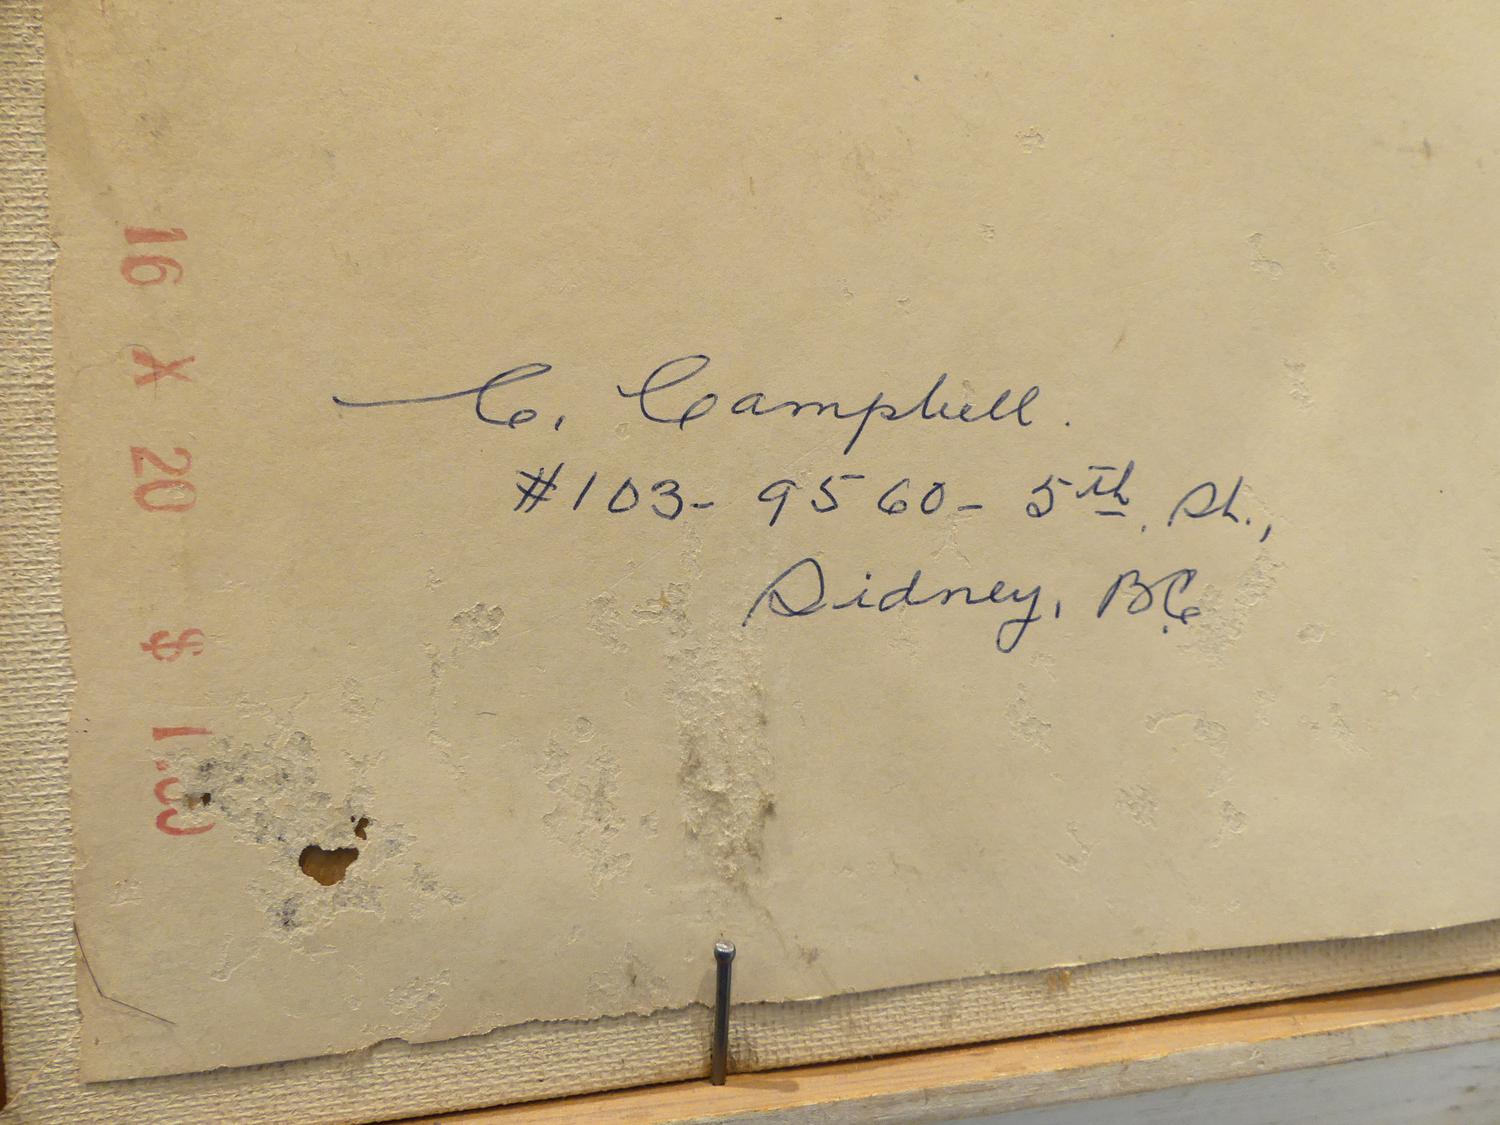 C. Campbell.
#103- 9560- 5th. St.,
Sidney, B.C.
16 X 20 $ 1.